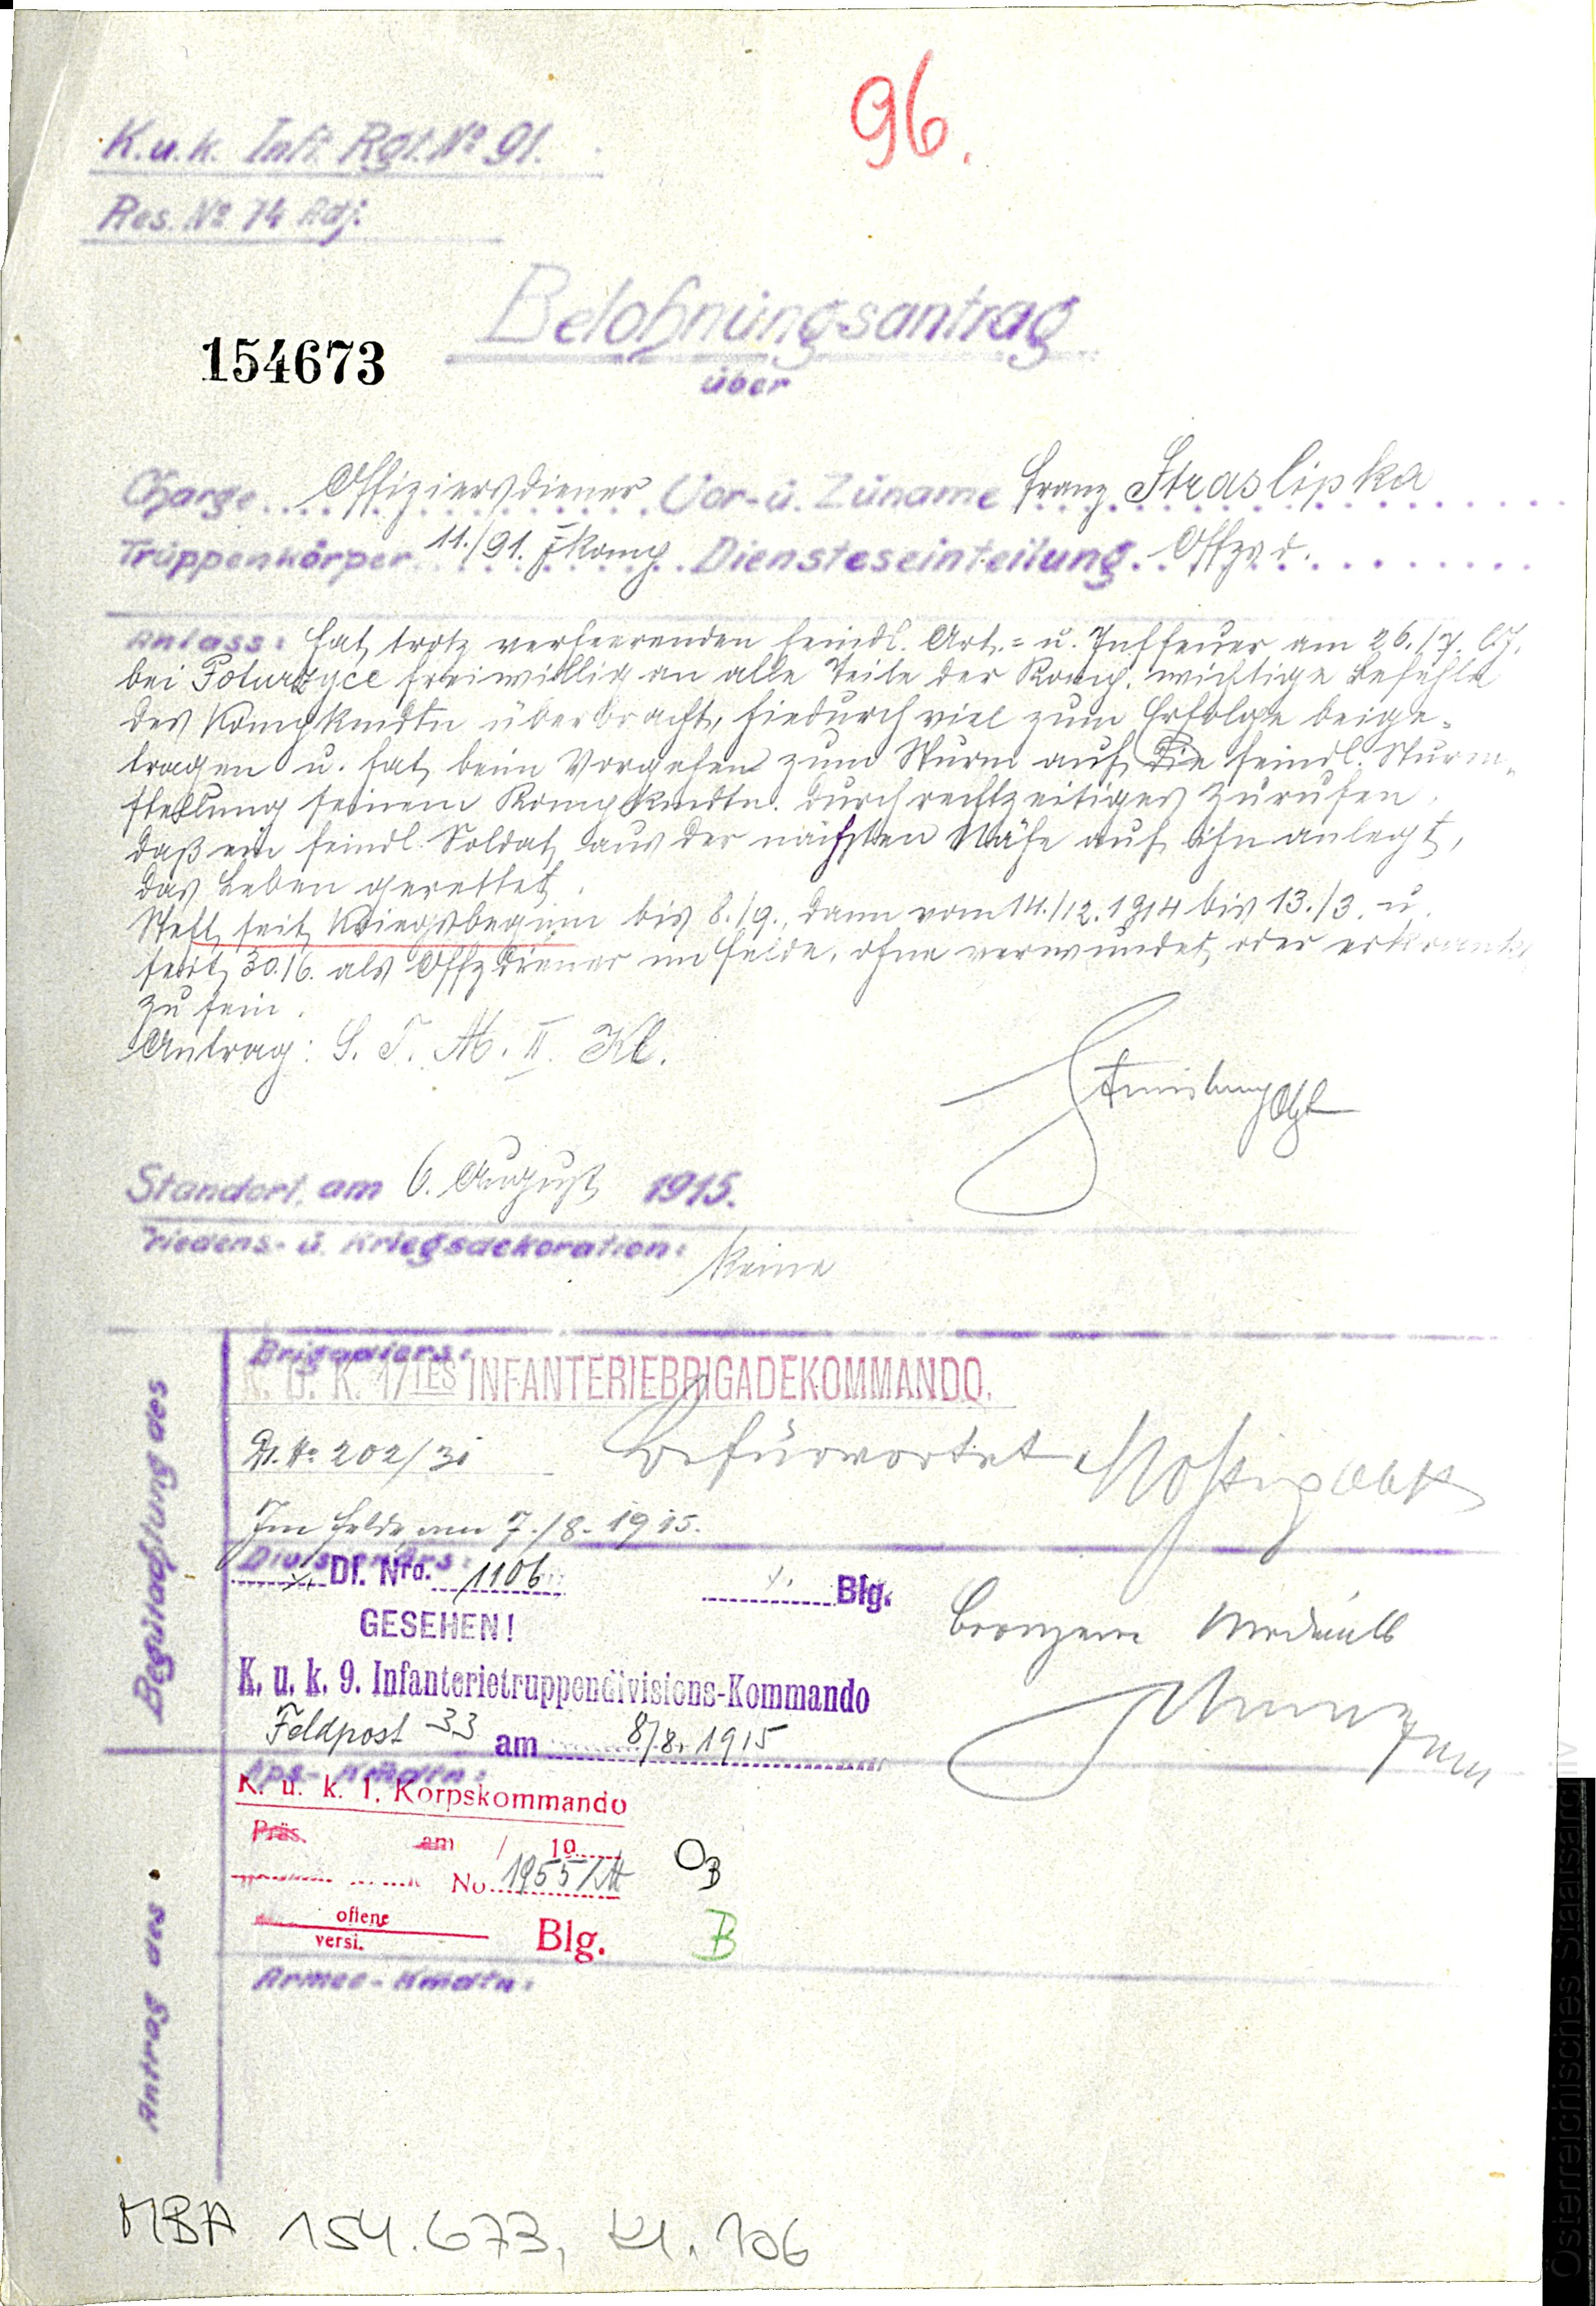 96.
K.u.k. Inft. Rgt. Nº 91.
Res. Nº 74 Adj.
Belohnungsantrag
154673
über
Charge Offiziersdiener Vor- u. Zuname Franz Straslipka
Truppenkörper 11./91. Fkomp Diensteseinteilung. Offzsd.
Anlass: Hat trotz verheerenden feindl. Art.= u. Inffeuer am 26./7. l.J.
bei Poturzyce freiwillig an alle Teile der Komp. wichtige Befehle
des Kompkmdtn überbracht, hiedurch viel zum Erfolge beige=
tragen u. hat beim Vorgehen zum Sturm auf die feindl. Sturm=
stellung seinem Kompkmdtn. durch rechtzeitiges Zurufen,
daß ein feindl. Soldat aus der nächsten Nähe auf ihn anlegt,
das Leben gerettet.
Steht seit Kriegsbeginn bis 8./9., dann vom 14./12. 1914 bis 13./3. u.
seit 30./6. als Offzdiener im Felde, ohne verwundet oder erkrankt
zu sein.
Antrag: S. T. M. II. Kl.
Standort, am 6. August 1915.
Friedens- u. Kriegsdekoration: Keine
Begutachtung des
Brigadiers:
K. U. K. 17TES INFANTERIEBRIGADEKOMMANDO.
Nº 202/31 Befürwortet Mossig Obst
Im Felde, am 7./8. 1915.
Divisionärs:
Df. Nro. 1106 Blg.
GESEHEN!
Bronzene
K. u. k. 9. Infanterietruppendivisions-Kommando
Feldpost 33 am 8/8. 1915
Antrag des
Kps- Kmdtn:
K. u. k. 1. Korpskommando
Präs. am / 19
No. 1955/
B
offene
versi.
Blg.
B
Armee-Kmdtn:
MBA 154.673, Kt. 106
Österreichisches Staatsarchiv